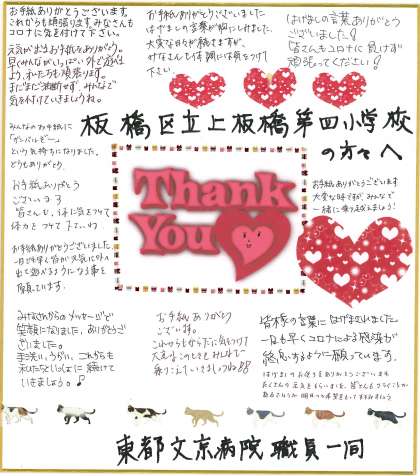 お手紙ありがとうございます。
これからも頑張ります。みなさんも
コロナに気を付けて下さい。
元気が出るお手紙をありがとう。
早くみんながいっぱい外で遊べる
よう、わたしたちも頑張ります。
まだまだ油断せず、みんなで
気を付けていきましょうね。
お手紙ありがとうございました
はげましの言葉が胸にしみました。
大変な日々が続きますが、
みなさんも体調には気をつけて
下さい。
はげましの言葉ありがとう
ございました!
皆さんもコロナに負けず
頑張ってください!
板橋区立上板橋第四小学校
の方々へ
みんなのお手紙に
「ガンバルぞー」
という気持ちになりました。
どうもありがとう。
お手紙ありがとう
ございます
皆さんも、体に気をつけて
体力をつけて下さいね。
お手紙ありがとうございました。
一日でも早く皆が元気に外へ
出て遊べるようになる事を
願っています。
Thank
You
お手紙ありがとうございます
大変な時ですが、みんなで
一緒に乗り越えましょう!
みなさんからのメッセージで
笑顔になりました。ありがとうご
ざいました。
手洗い、うがい、これからも
私たちといっしょに続けて
いきましょう。♪
お手紙ありがとう
ございます。
これからもからだに気をつけて
大変な
皆様の言葉にはげまされました。
一日も早くコロナによる感染が
終息するよう願っています。
はげましのお便りをありがとうございます
たくさんの元気をもらいました。
東都文京病院職員一同